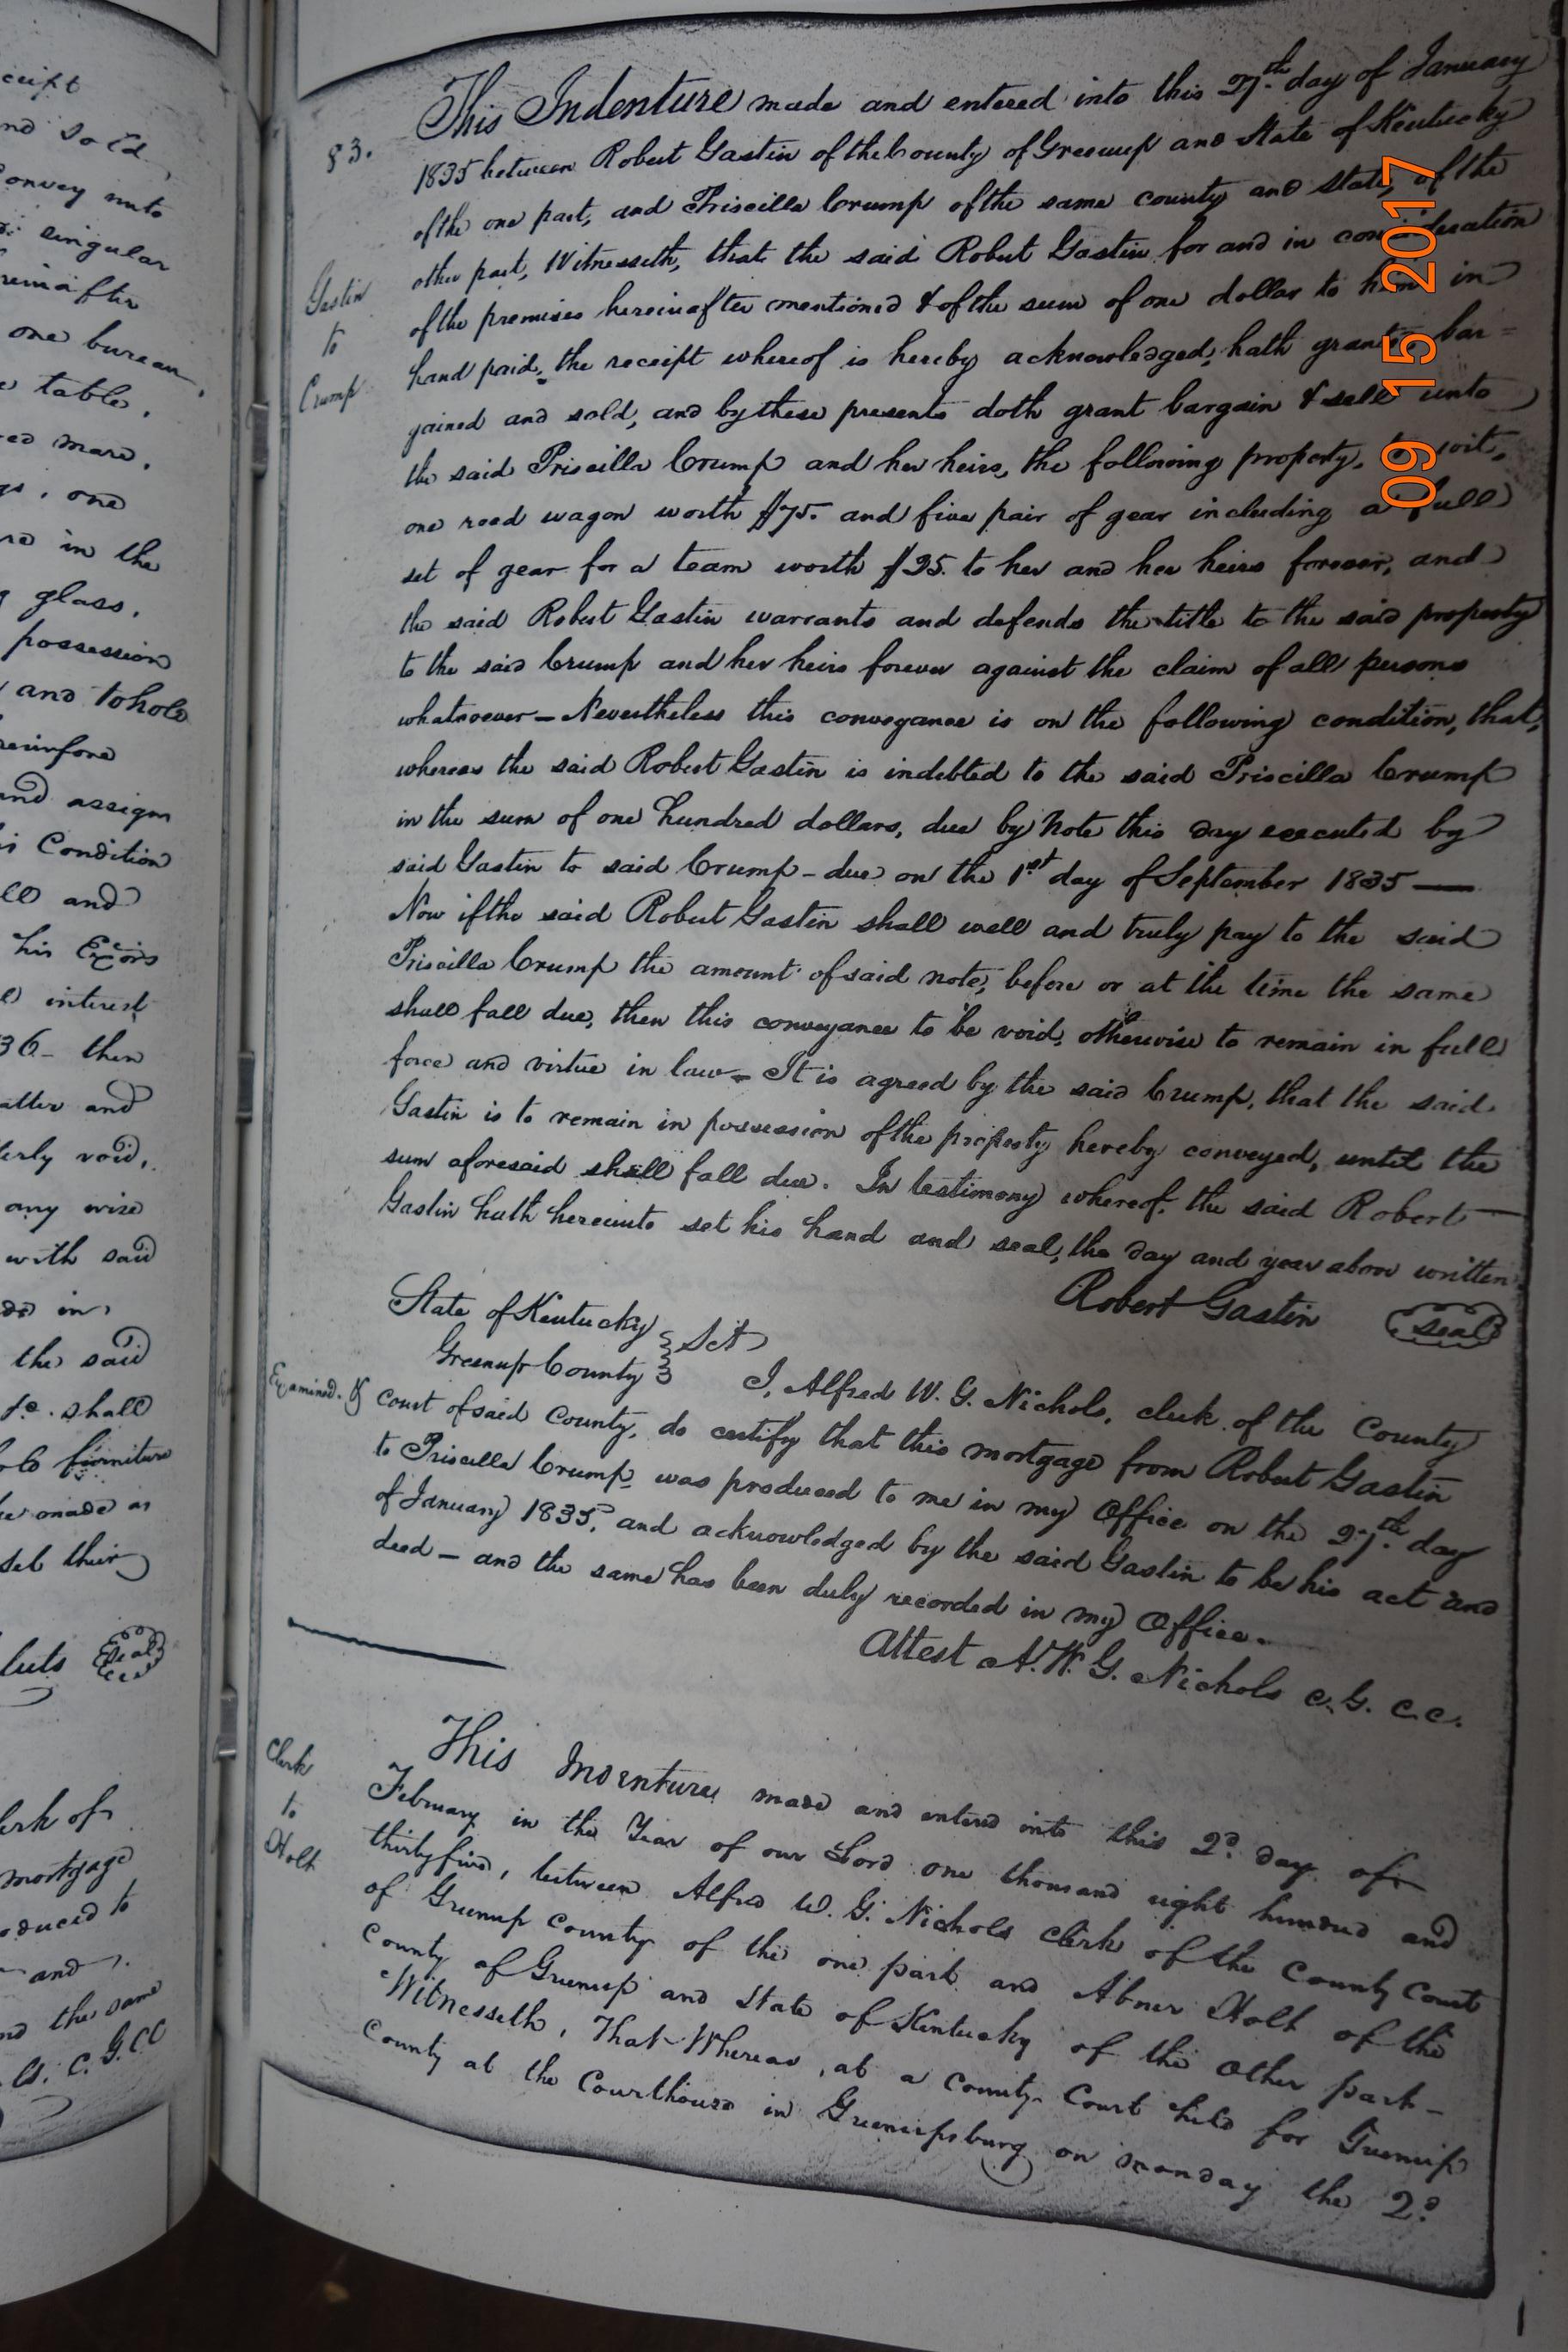 ceipt
nd sold
Convey unto
singular
reinafter
one bureau,
table,
mare,
one
in the
glass,
possession
and to hold
and assigns
Condition
and
his Exōrs
interest
36 - then
and
void,
any wise
with said
in
the said
shall
furniture
made as
set their
Seal
erk of
mortgage
oduced to
and
nd the same
C. G. CC
83.
Gastin
to
Crump
This Indenture made and entered into this 27th day of January
1835 between Robert Gastin of the County of Greenup and State of Kentucky
of the one part, and Priscilla Crump of the same county and state, of the
other part, Witnesseth, that the said Robert Gastin for and in consideration
of the premises hereinafter mentioned & of the sum of one dollar to him in
hand paid, the receipt whereof is hereby acknowledged, hath granted bar=
gained and sold, and by these presents doth grant bargain & sell unto
the said Priscilla Crump and her heirs, the following property, to wit,
one road wagon worth $75. and five pair of gear including a full
set of gear for a team worth $25. to her and her heirs forever, and
the said Robert Gastin warrants and defends the title to the said property
to the said Crump and her heirs forever against the claim of all persons
whatsoever - Nevertheless this conveyance is on the following condition, that,
whereas the said Robert Gastin is indebted to the said Priscilla Crump
in the sum of one hundred dollars, due by note this day executed by
said Gastin to said Crump - due on the 1st day of September 1835 —
Now if the said Robert Gastin shall well and truly pay to the said
Priscilla Crump the amount of said note, before or at the time the same
shall fall due, then this conveyance to be void, otherwise to remain in full
force and virtue in law - It is agreed by the said Crump, that the said
Gastin is to remain in possession of the property hereby conveyed, until the
sum aforesaid shall fall due. In testimony whereof, the said Robert —
Gastin hath hereunto set his hand and seal, the day and year above written.
Robert Gastin seal
State of Kentucky } Sct
Greenup County }
Examined. I, Alfred W. G. Nichols, clerk of the County
court of said County, do certify that this mortgage from Robert Gastin
to Priscilla Crump was produced to me in my Office on the 27th day
of January 1835, and acknowledged by the said Gastin to be his act and
deed - and the same has been duly recorded in my Office.
Attest A. W. G. Nichols C. G. C. C.
Clerk
to
Holt
This Indenture made and entered into this 2d day of
February in the Year of our Lord one thousand eight hundred and
thirty five, between Alfred W. G. Nichols clerk of the County Court
of Greenup County of the one part and Abner Holt of the
County of Greenup and State of Kentucky of the other part -
Witnesseth, That Whereas, at a County Court held for Greenup
County at the Courthouse in Greenupsburg on monday the 2d
09 15 2017